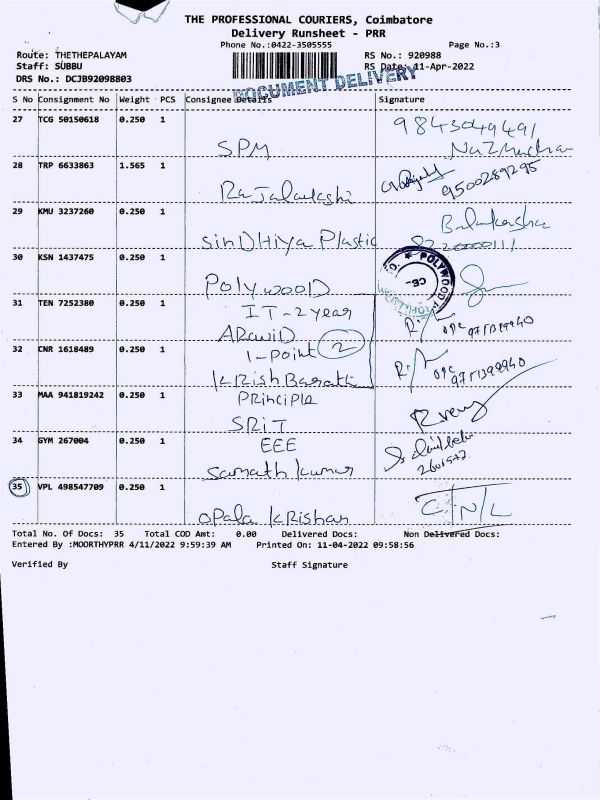 THE PROFESSIONAL COURIERS, Coimbatore
Delivery Runsheet - PRR
Phone No.:0422-3505555 Page No.:3
Route: THETHEPALAYAM RS No.: 920988
Staff: SUBBU RS Date: 11-Apr-2022
DRS No.: DCJB92098803
DOCUMENT DELIVERY
S No Consignment No Weight PCS Consignee Details Signature
27 TCG 50150618 0.250 1 9843049491
SPM
28 TRP 6633863 1.565 1
9500289295
29 KMU 3237260 0.250 1
SinDHiya Plastic
30 KSN 1437475 0.250 1 POLYWOOD
POlywooD
31 TEN 7252380 0.250 1 IT-2 year
32 CNR 1618489 0.250 1 1-Point 2
KRish Barath
33 MAA 941819242 0.250 1 PRinciple
SRiT
34 GYM 267004 0.250 1 EEE
Samath kumar
35 VPL 498547709 0.250 1 C/N/L
opala KRishan
Total No. Of Docs: 35 Total COD Amt: 0.00 Delivered Docs: Non Delivered Docs:
Entered By :MOORTHYPRR 4/11/2022 9:59:39 AM Printed On: 11-04-2022 09:58:56
Verified By Staff Signature